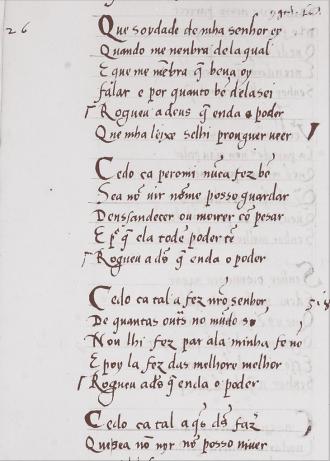 26
Que soydade demha senhor ey
Quando me nenbra dela qual
E que me nẽbra q̃ bena oy
falar e por quanto bẽ dela sei
Rogueu a deus q̃ enda o poder
Que mha leixe selhi prouguer ueer
Cedo ca peromi nũca fez bẽ
Sea nõ uir nõme posso guardar
Denssandecer ou morrer cõ pesar
E p̃ q̃ ela todẽ poder tẽ
Rogueu a ds̃ q̃ enda o poder
Cedo ca tal a fez nr̃o senhor
De quantas out̃s no mũdo sõ
Non lhi fez par ala minha fe nõ
E poy la fez das melhores melhor
Rogueu ads̃ q̃ enda o poder
Cedo ca tal a q̃s ds̃ faz
Quesea nõ uyr nõ posso uiuer